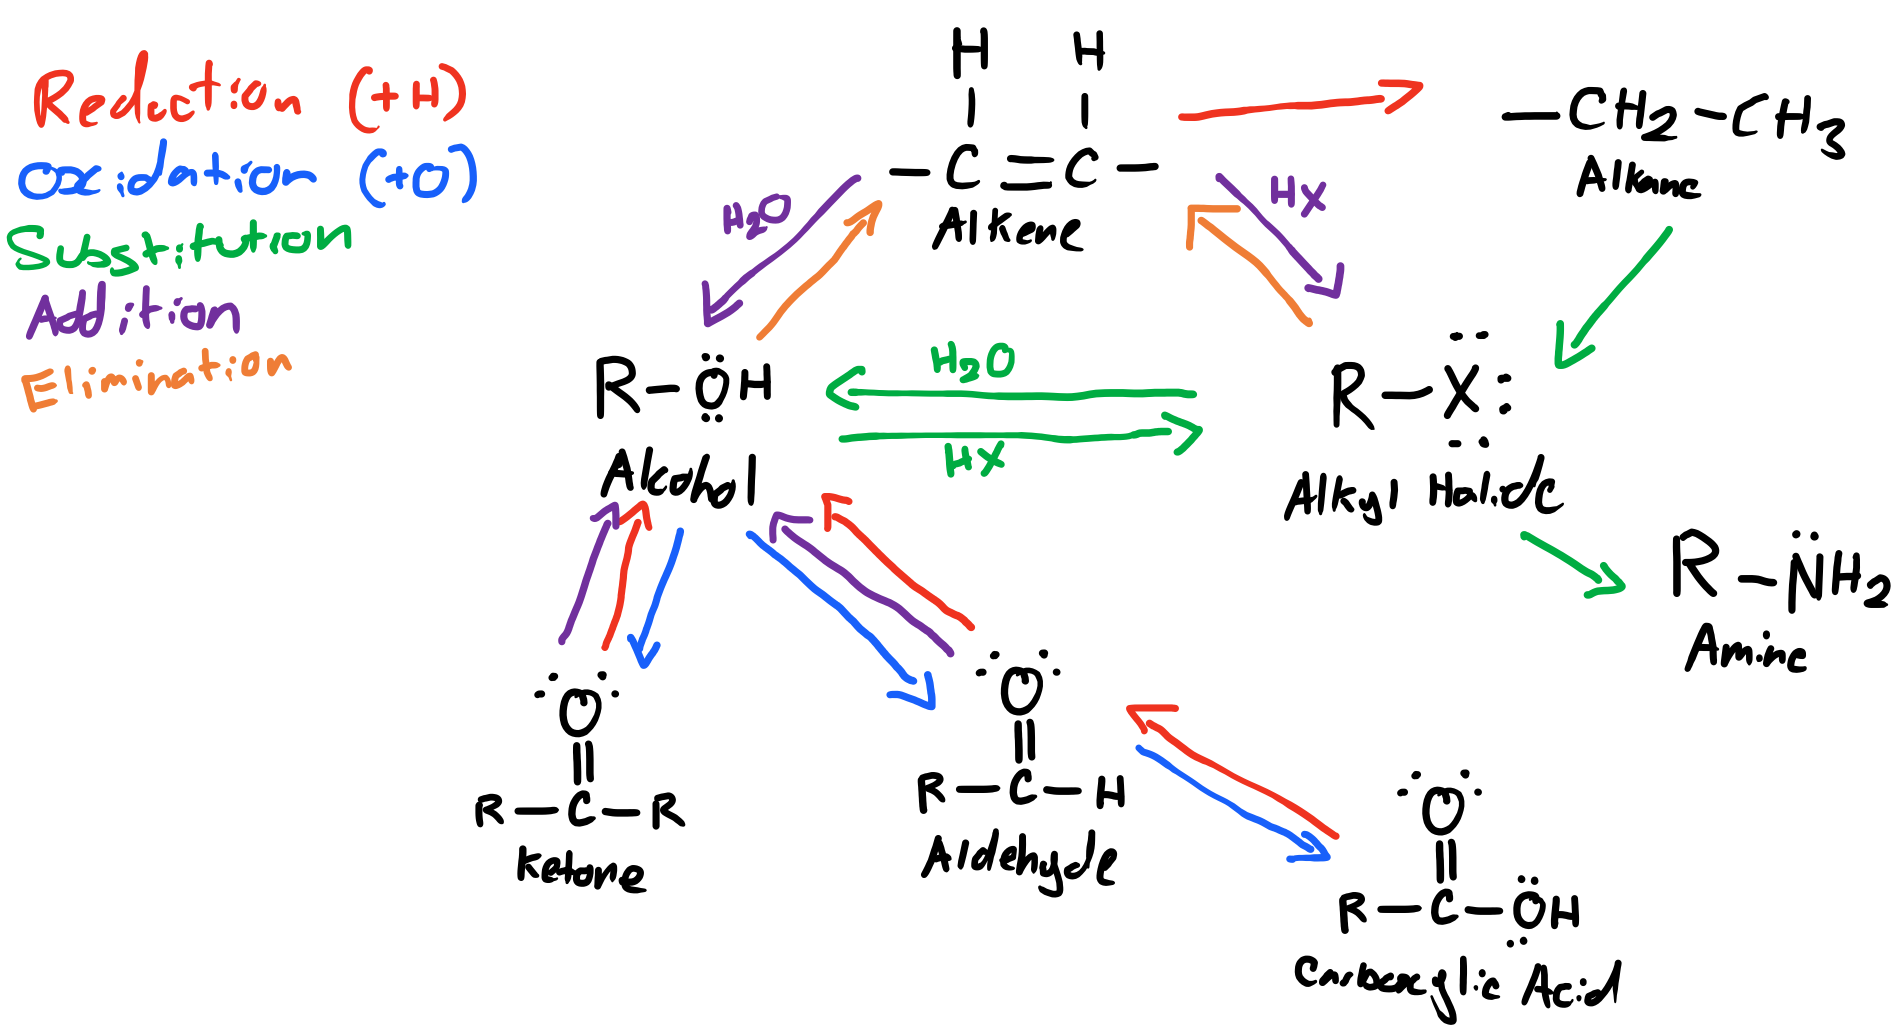 Reduction (+H)
Oxidation (+O)
Substitution
Addition
Elimination
H H
-C=C-
Alkene
-CH2-CH3
Alkane
H2O
HX
R-OH
Alcohol
H2O
HX
R-X
Alkyl Halide
R-NH2
Amine
O
R-C-R
Ketone
O
R-C-H
Aldehyde
O
R-C-OH
Carboxylic Acid